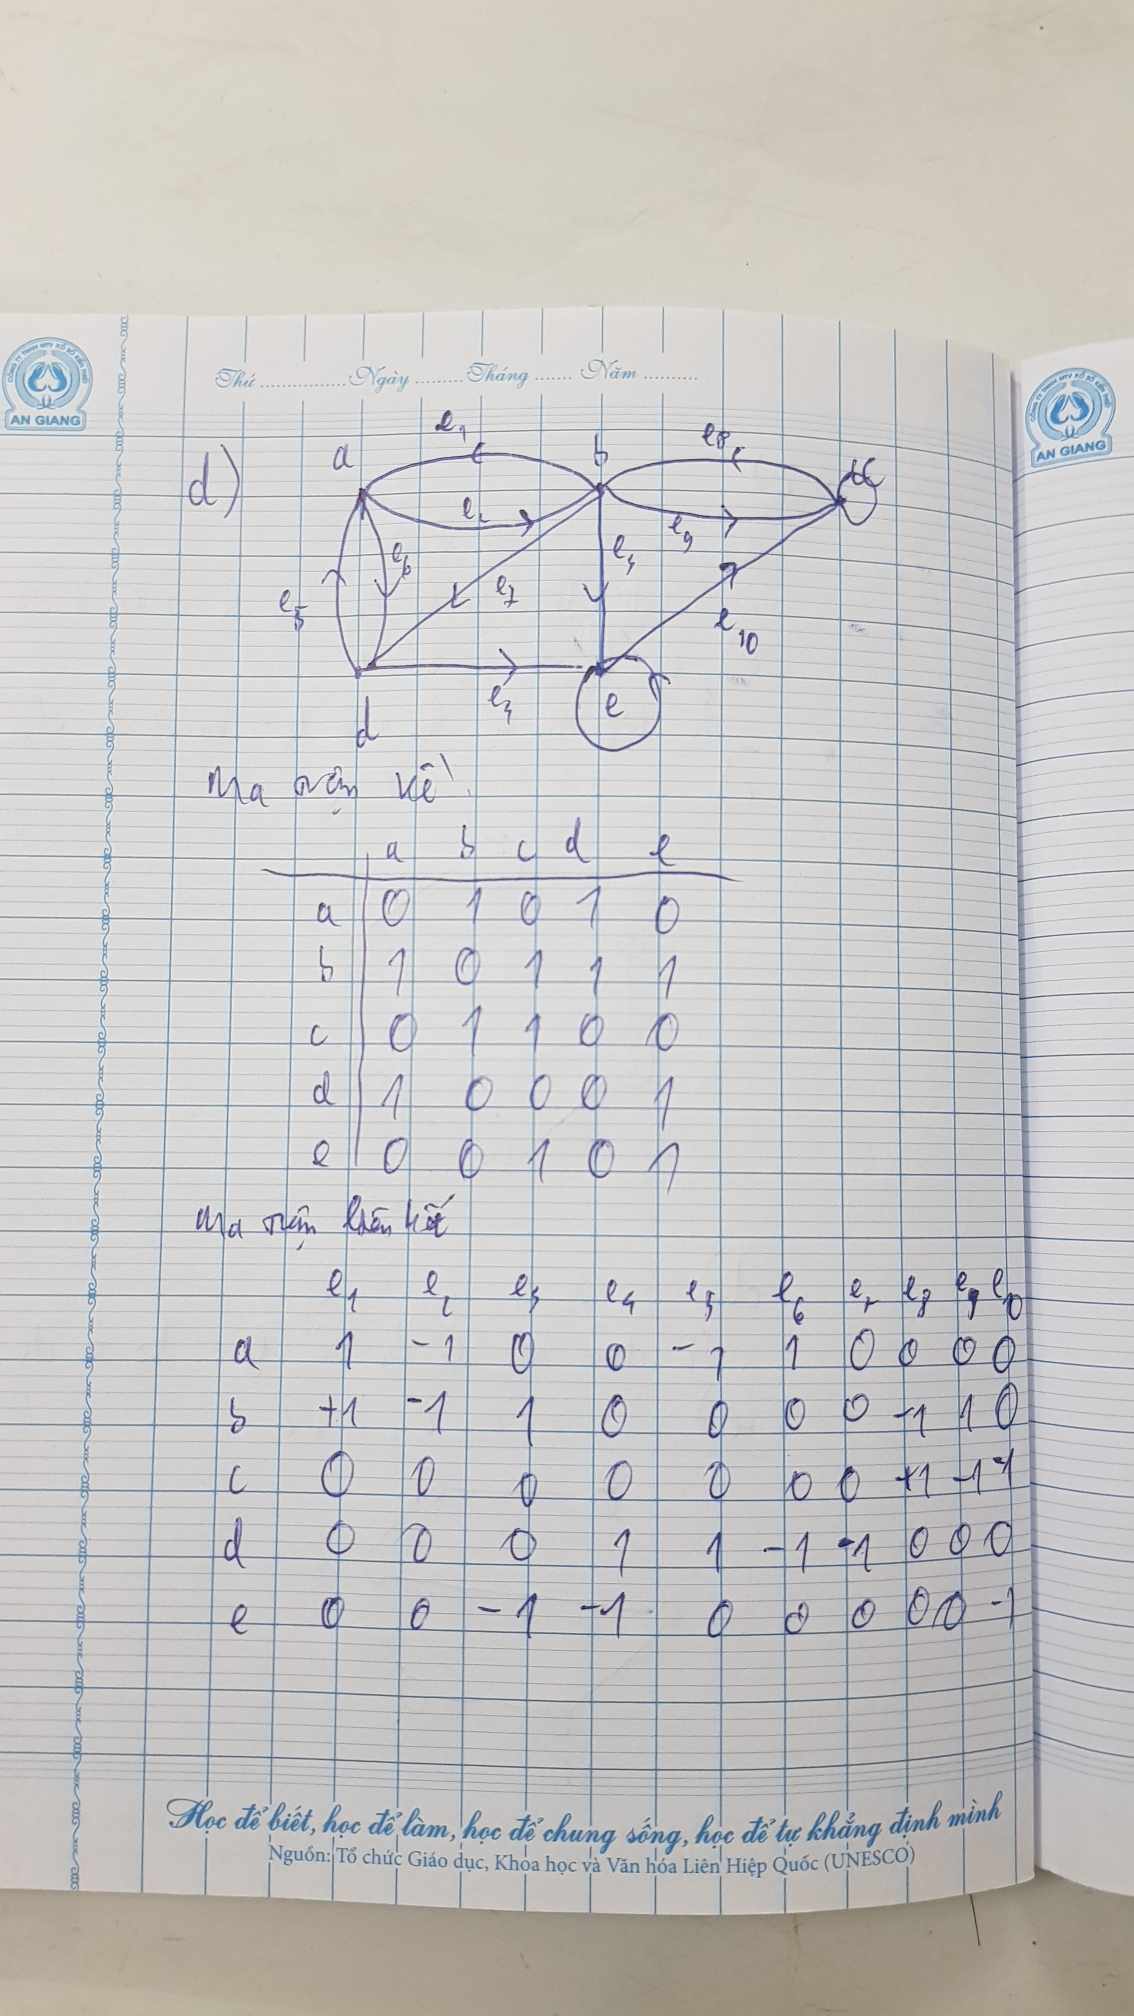 CÔNG TY TNHH MTV XỔ SỐ KIẾN THIẾT
AN GIANG
Thứ ............... Ngày ......... Tháng ....... Năm ..........
CÔNG TY TNHH MTV XỔ SỐ KIẾN THIẾT
AN GIANG
d)
a e1 b e8 c
e2 e9
e5 e6 e7 e3
e10
e4 e
d
Ma trận kề
a b c d e
a 0 1 0 1 0
b 1 0 1 1 1
c 0 1 1 0 0
d 1 0 0 0 1
e 0 0 1 0 1
Ma trận liên kết
e1 e2 e3 e4 e5 e6 e7 e8 e9 e10
a 1 -1 0 0 -1 1 0 0 0 0
b +1 -1 1 0 0 0 0 -1 1 0
c 0 0 0 0 0 0 0 +1 -1 -1
d 0 0 0 1 1 -1 -1 0 0 0
e 0 0 -1 -1 0 0 0 0 0 -1
Học để biết, học để làm, học để chung sống, học để tự khẳng định mình
Nguồn: Tổ chức Giáo dục, Khoa học và Văn hóa Liên Hiệp Quốc (UNESCO)